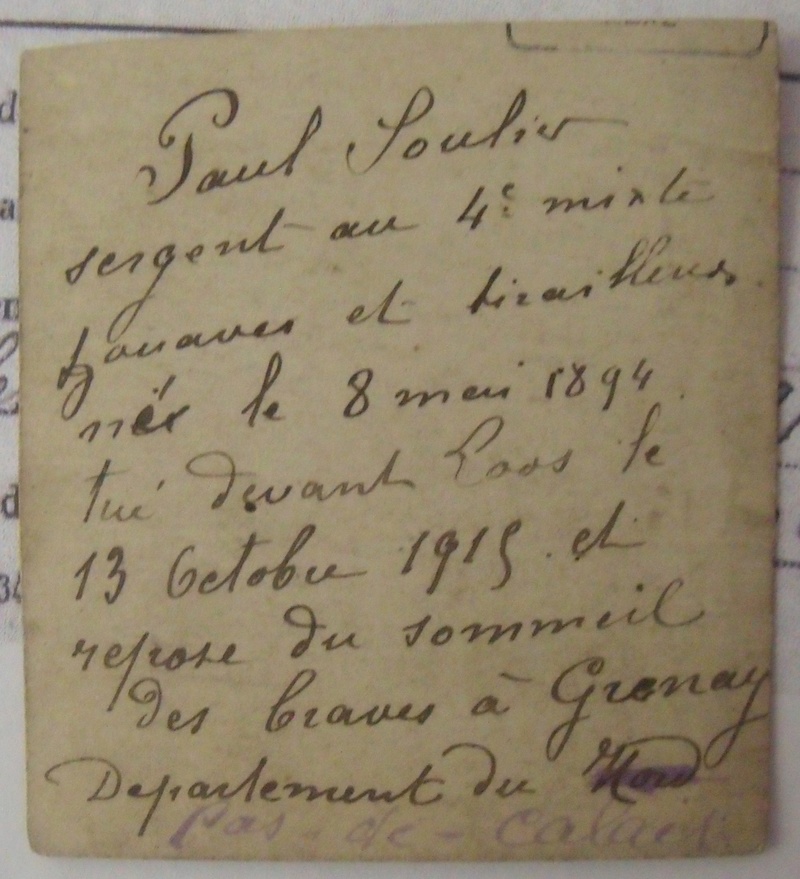 Paul Soulier
sergent au 4e mixte
zouaves et tirailleurs
nés le 8 mai 1894
tué devant Loos le
13 Octobre 1915 et
repose du sommeil
des braves à Grenay
Departement du Nord
Pas-de-Calais